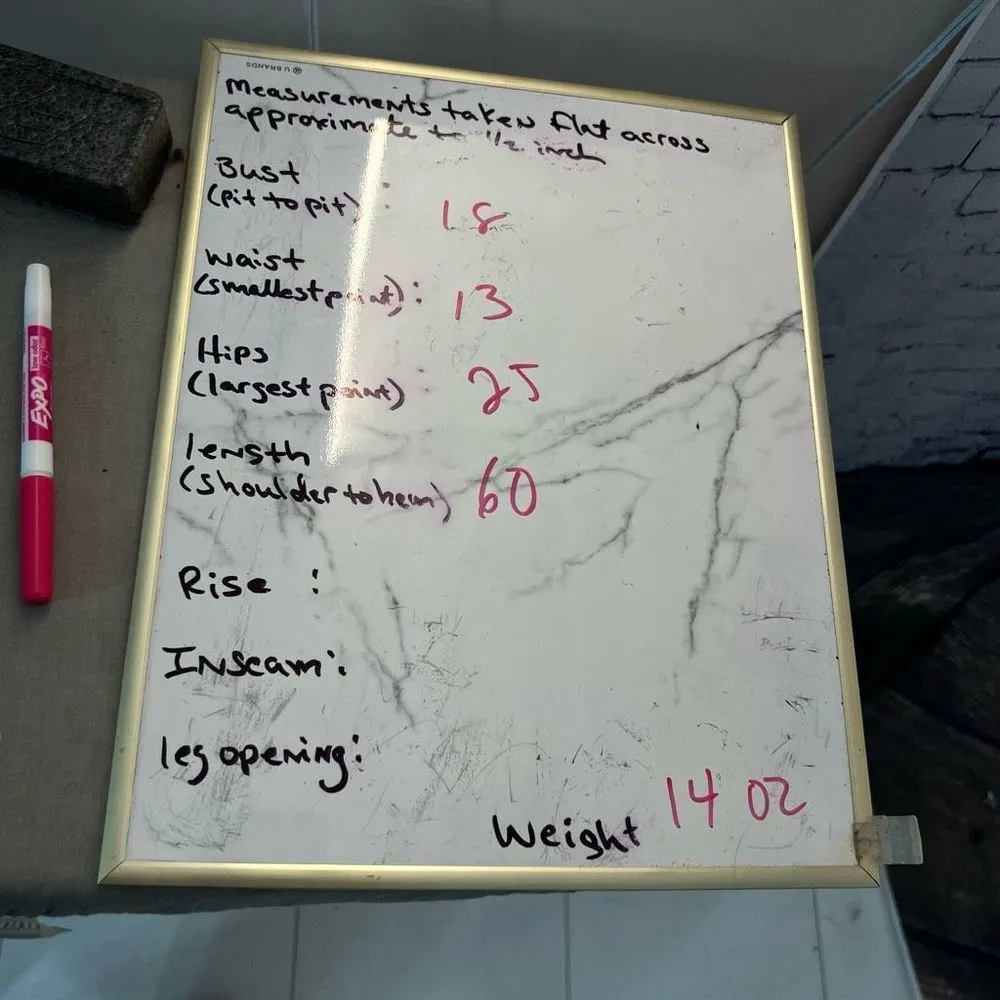 U BRANDS
Measurements taken flat across
approximate to 1/2 inch
Bust
(pit to pit) : 18
Waist
(smallest point) : 13
Hips
(largest point) : 25
length
(shoulder to hem) 60
Rise :
Inseam:
leg opening:
Weight 14 oz
EXPO
low odor